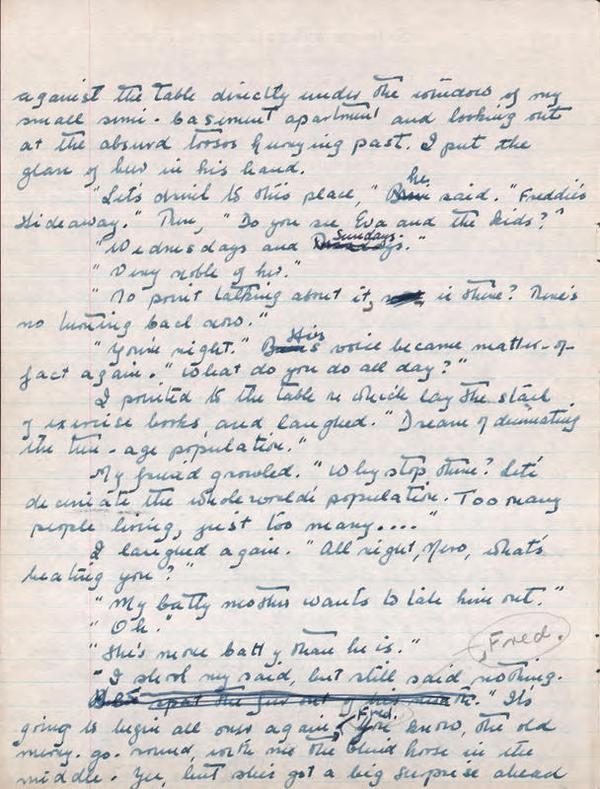 against the table directly under the window of my
small semi-basement apartment and looking out
at the absurd torsos hurrying past. I put the
glass of beer in his hand.
"Let's drink to this place," he said. "Freddie's
Hideaway." Then, "Do you see Eva and the kids?"
"Wednesdays and Sundays."
"Very noble of her."
"No point talking about it, is there? There's
no turning back now."
"You're right." His voice became matter-of-
fact again. "What do you do all day?"
I pointed to the table on which lay the stack
of exercise books, and laughed. "Dream of decimating
the teen-age population."
My friend growled. "Why stop there? Let's
decimate the whole world's population. Too many
people living, just too many...."
I laughed again. "All right, Nero, what's
eating you?"
"My batty mother wants to take him out."
"Oh."
"She's more batty than he is."
, Fred.
"I shook my said, but still said nothing.
"It's
going to begin all over again, Fred. You know, the old
merry-go-round, with me the blind horse in the
middle. Yes, but she's got a big surprise ahead